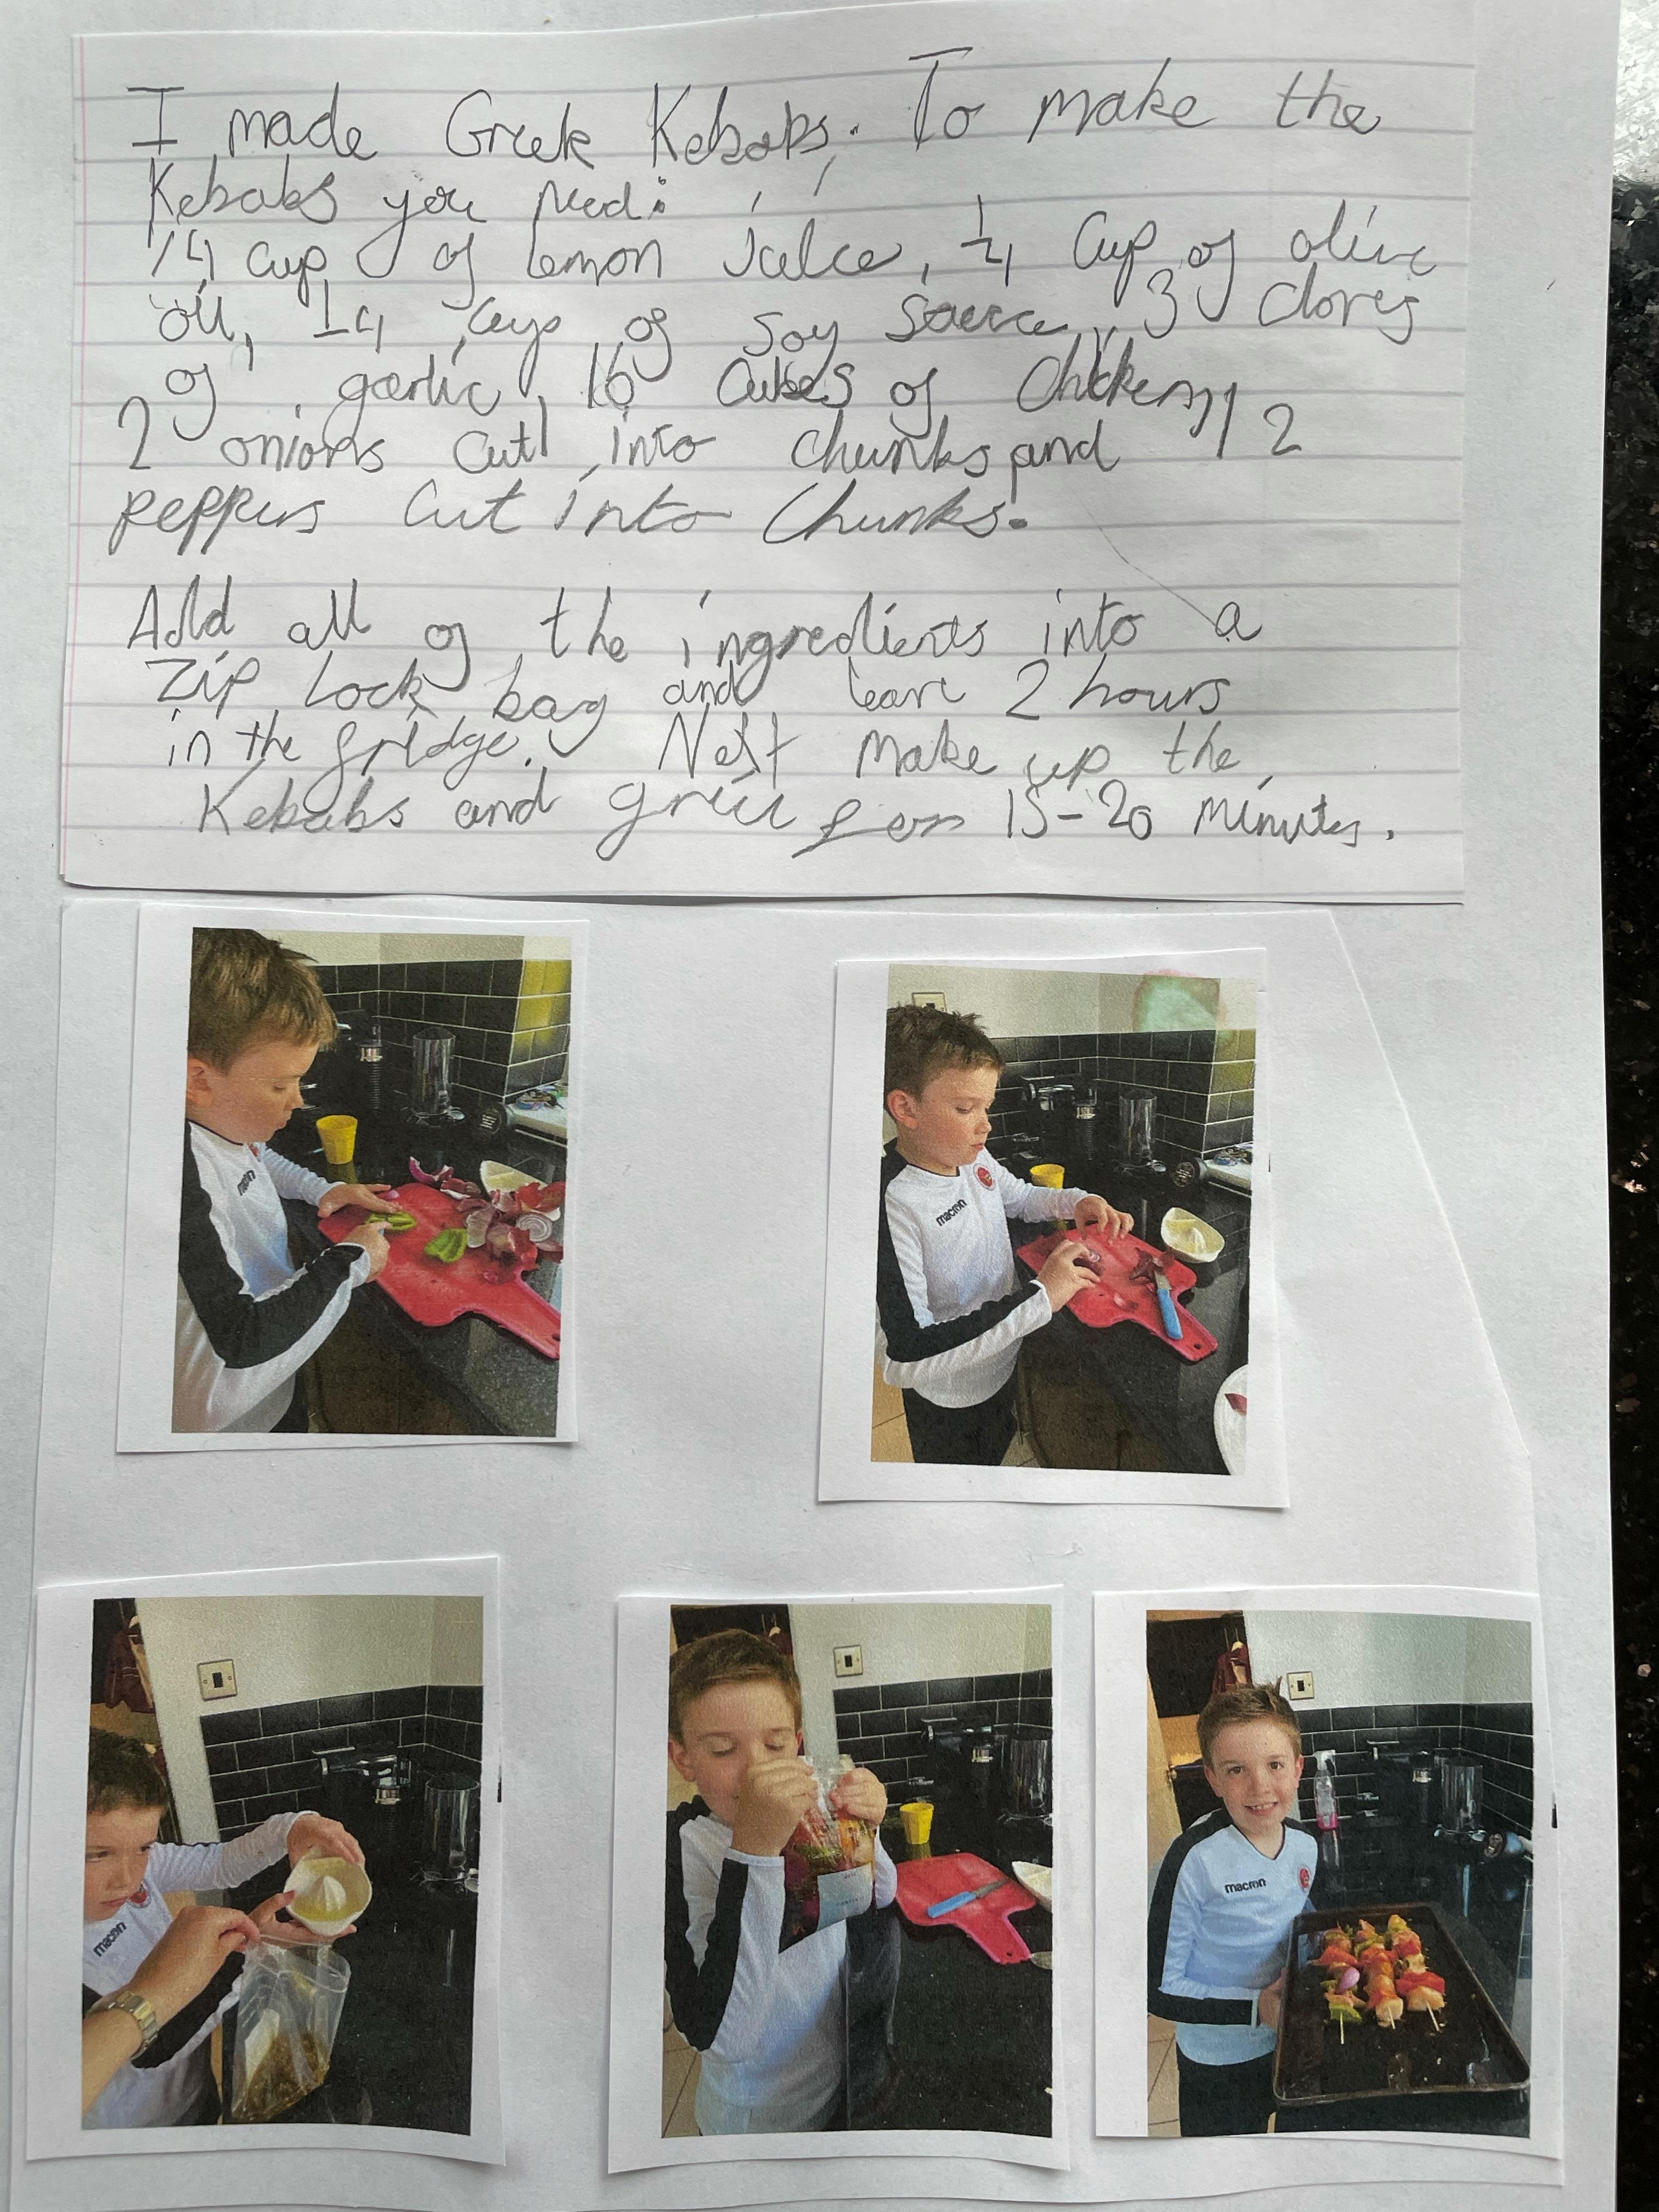 I made Greek Kebabs. To make the
Kebabs you need:
1/4 cup of Lemon Juice, 1/4 Cup of olive
oil, 1/4 cup of soy sauce, 3 cloves
of garlic, 16 Cubes of Chicken,
2 onions cut into chunks and 2
peppers cut into chunks.
Add all of the ingredients into a
Zip Lock bag and leave 2 hours
in the fridge. Next make up the
Kebabs and grill for 15-20 minutes.
macron
macron
macron
macron